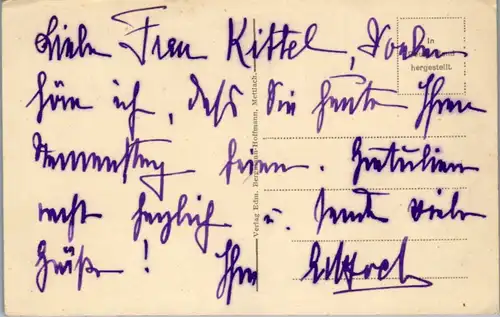 Liebe Frau Kittel, Soeben
höre ich, daß Sie heute Ihren
Namenstag feiern. Gratuliere
recht herzlich u. sende viele
Grüße! Ihre
In
hergestellt.
Verlag Edm. Bergmann-Hoffmann, Mettlach.